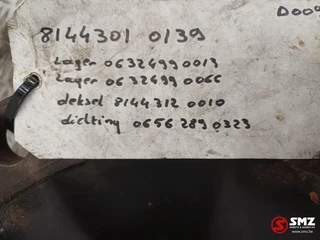 D009
8144301 0139
Lager 06324990013
Lager 06324990066
deksel 8144312 0010
dichting 0656 289 0323
SMZ
www.smz.be